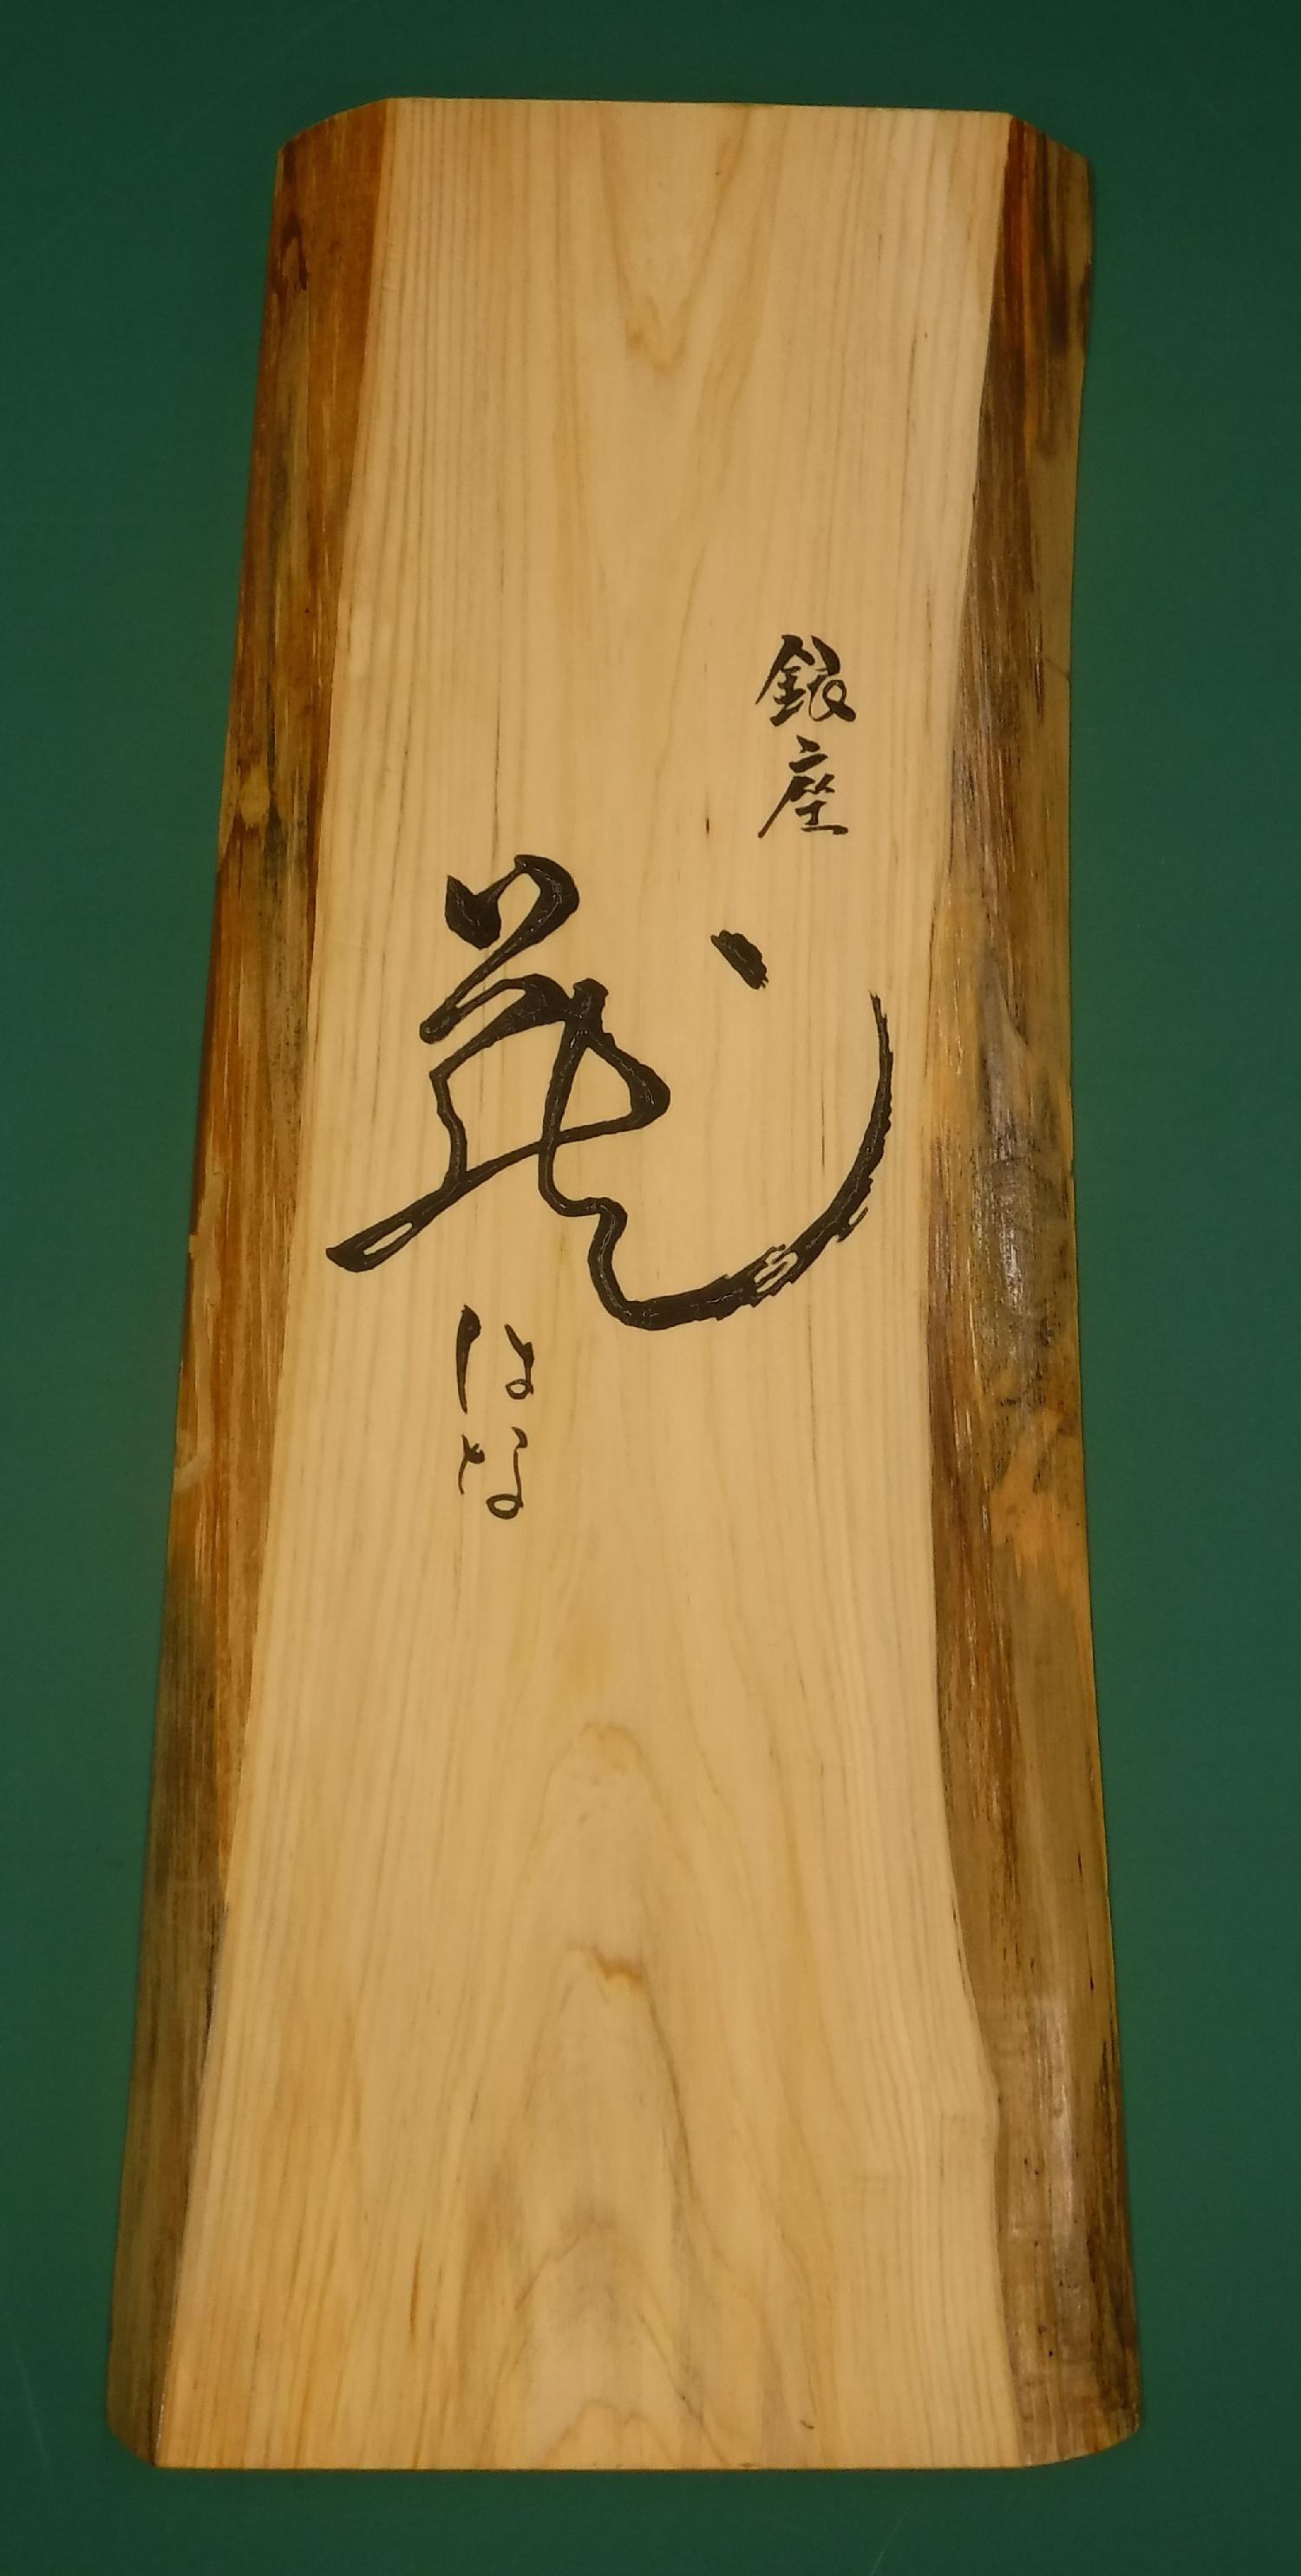 銀座
はな